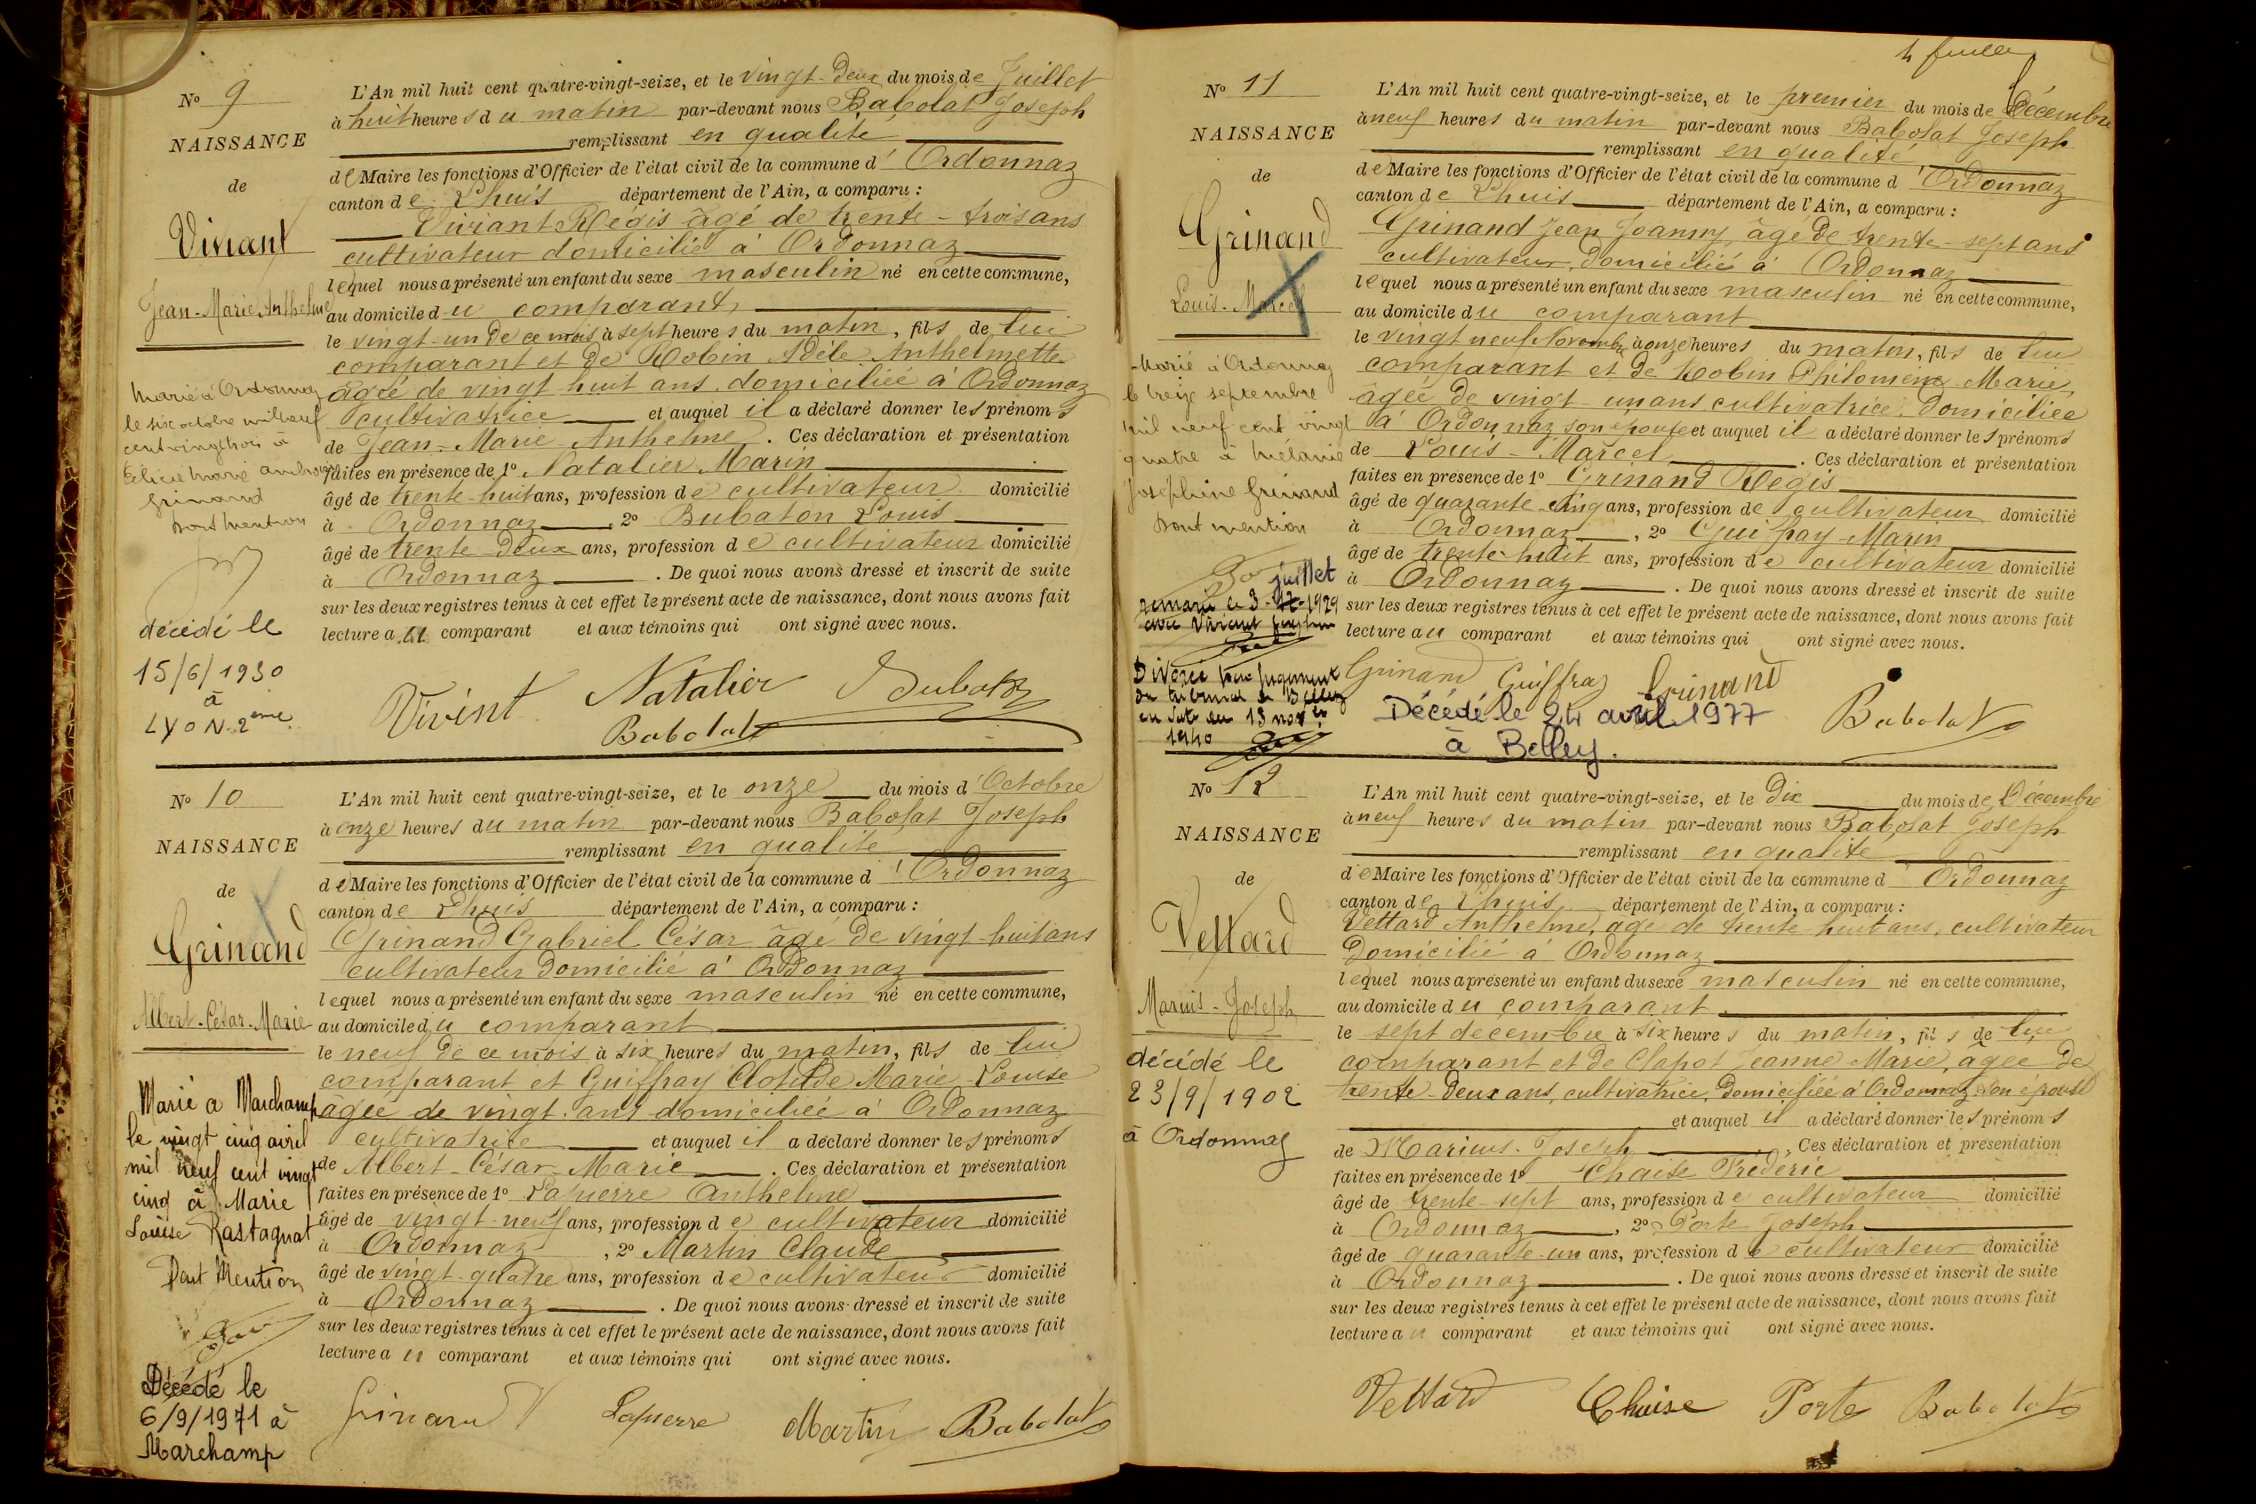 N° 9
NAISSANCE
de
Viviant
Jean-Marie Anthelme
Marié à Ordonnaz
le six octobre mil neuf
cent vingt trois à
Grinand
Dont mention
décédé le
15/6/1930
à
LYON-2ème
L'An mil huit cent quatre-vingt-seize, et le vingt-deux du mois de Juillet
à huit heures du matin par-devant nous Babolat Joseph
remplissant en qualité
de Maire les fonctions d'Officier de l'état civil de la commune d'Ordonnaz
canton de Lhuis département de l'Ain, a comparu :
Viviant Régis âgé de trente-trois ans
cultivateur domicilié à Ordonnaz
lequel nous a présenté un enfant du sexe masculin né en cette commune,
au domicile du comparant,
le vingt-un de ce mois à sept heures du matin, fils de lui
comparant et de Robin Adèle Anthelmette
âgée de vingt huit ans, domiciliée à Ordonnaz
cultivatrice et auquel il a déclaré donner les prénoms
de Jean-Marie Anthelme. Ces déclaration et présentation
faites en présence de 1° Natalier Marin
âgé de trente-huit ans, profession de cultivateur domicilié
à Ordonnaz, 2° Bubaton Louis
âgé de trente-deux ans, profession de cultivateur domicilié
à Ordonnaz. De quoi nous avons dressé et inscrit de suite
sur les deux registres tenus à cet effet le présent acte de naissance, dont nous avons fait
lecture au comparant et aux témoins qui ont signé avec nous.
Vivint Natalier Bubaton
Babolat
N° 10
NAISSANCE
de
Grinand
Albert-César-Marie
Marié a Marchamp
le vingt cinq avril
mil neuf cent vingt
cinq à Marie
Louise Rastagnat
Dont Mention
Décédé le
6/9/1971 à
Marchamp
L'An mil huit cent quatre-vingt-seize, et le onze du mois d'Octobre
à onze heures du matin par-devant nous Babolat Joseph
remplissant en qualité
de Maire les fonctions d'Officier de l'état civil de la commune d'Ordonnaz
canton de Lhuis département de l'Ain, a comparu :
Grinand Gabriel César âgé de vingt-huit ans
cultivateur domicilié à Ordonnaz
lequel nous a présenté un enfant du sexe masculin né en cette commune,
au domicile du comparant
le neuf de ce mois à six heures du matin, fils de lui
comparant et Guiffray Clotilde Marie Louise
âgée de vingt ans domiciliée à Ordonnaz
cultivatrice et auquel il a déclaré donner les prénoms
de Albert-César-Marie. Ces déclaration et présentation
faites en présence de 1° Lapierre Anthelme
âgé de vingt-neuf ans, profession de cultivateur domicilié
à Ordonnaz, 2° Martin Claude
âgé de vingt-quatre ans, profession de cultivateur domicilié
à Ordonnaz. De quoi nous avons dressé et inscrit de suite
sur les deux registres tenus à cet effet le présent acte de naissance, dont nous avons fait
lecture au comparant et aux témoins qui ont signé avec nous.
Grinand Lapierre Martin Babolat
4 feuille
N° 11
NAISSANCE
de
Grinand
Louis-Marcel
Marié à Ordonnaz
le treize septembre
mil neuf cent vingt
quatre à Mélanie
Joséphine Grinand
Dont mention
juillet
remarié le 3-12-1929
avec
Divorcé par jugement
du tribunal de Belley
en date du 13 nov
1940
L'An mil huit cent quatre-vingt-seize, et le premier du mois de Décembre
à neuf heures du matin par-devant nous Babolat Joseph
remplissant en qualité
de Maire les fonctions d'Officier de l'état civil de la commune d'Ordonnaz
canton de Lhuis département de l'Ain, a comparu :
Grinand Jean Joanny, âgé de trente-sept ans
cultivateur, domicilié à Ordonnaz
lequel nous a présenté un enfant du sexe masculin né en cette commune,
au domicile du comparant
le vingt neuf Novembre à onze heures du matin, fils de lui
comparant et de Robin Philomène Marie,
âgée de vingt-un ans cultivatrice, domiciliée
à Ordonnaz son épouse et auquel il a déclaré donner les prénoms
de Louis-Marcel. Ces déclaration et présentation
faites en présence de 1° Grinand Régis
âgé de quarante-cinq ans, profession de cultivateur domicilié
à Ordonnaz, 2° Guiffray Marin
âgé de trente-huit ans, profession de cultivateur domicilié
à Ordonnaz. De quoi nous avons dressé et inscrit de suite
sur les deux registres tenus à cet effet le présent acte de naissance, dont nous avons fait
lecture au comparant et aux témoins qui ont signé avec nous.
Grinand Guiffray Grinand
Babolat
Décédé le 24 avril 1977
à Belley.
N° 12
NAISSANCE
de
Vettard
Marius-Joseph
décédé le
23/9/1902
à Ordonnaz
L'An mil huit cent quatre-vingt-seize, et le dix du mois de Décembre
à neuf heures du matin par-devant nous Babolat Joseph
remplissant en qualité
de Maire les fonctions d'Officier de l'état civil de la commune d'Ordonnaz
canton de Lhuis département de l'Ain, a comparu :
Vettard Anthelme, âgé de trente huit ans, cultivateur
domicilié à Ordonnaz
lequel nous a présenté un enfant du sexe masculin né en cette commune,
au domicile du comparant
le sept décembre à six heures du matin, fils de lui
comparant et de Clapot Jeanne Marie, âgée de
trente-deux ans, cultivatrice, domiciliée à Ordonnaz son épouse
et auquel il a déclaré donner les prénoms
de Marius-Joseph. Ces déclaration et présentation
faites en présence de 1° Chaise Frédéric
âgé de trente-sept ans, profession de cultivateur domicilié
à Ordonnaz, 2° Porte Joseph
âgé de quarante-un ans, profession de cultivateur domicilié
à Ordonnaz. De quoi nous avons dressé et inscrit de suite
sur les deux registres tenus à cet effet le présent acte de naissance, dont nous avons fait
lecture au comparant et aux témoins qui ont signé avec nous.
Vettard Chaise Porte Babolat